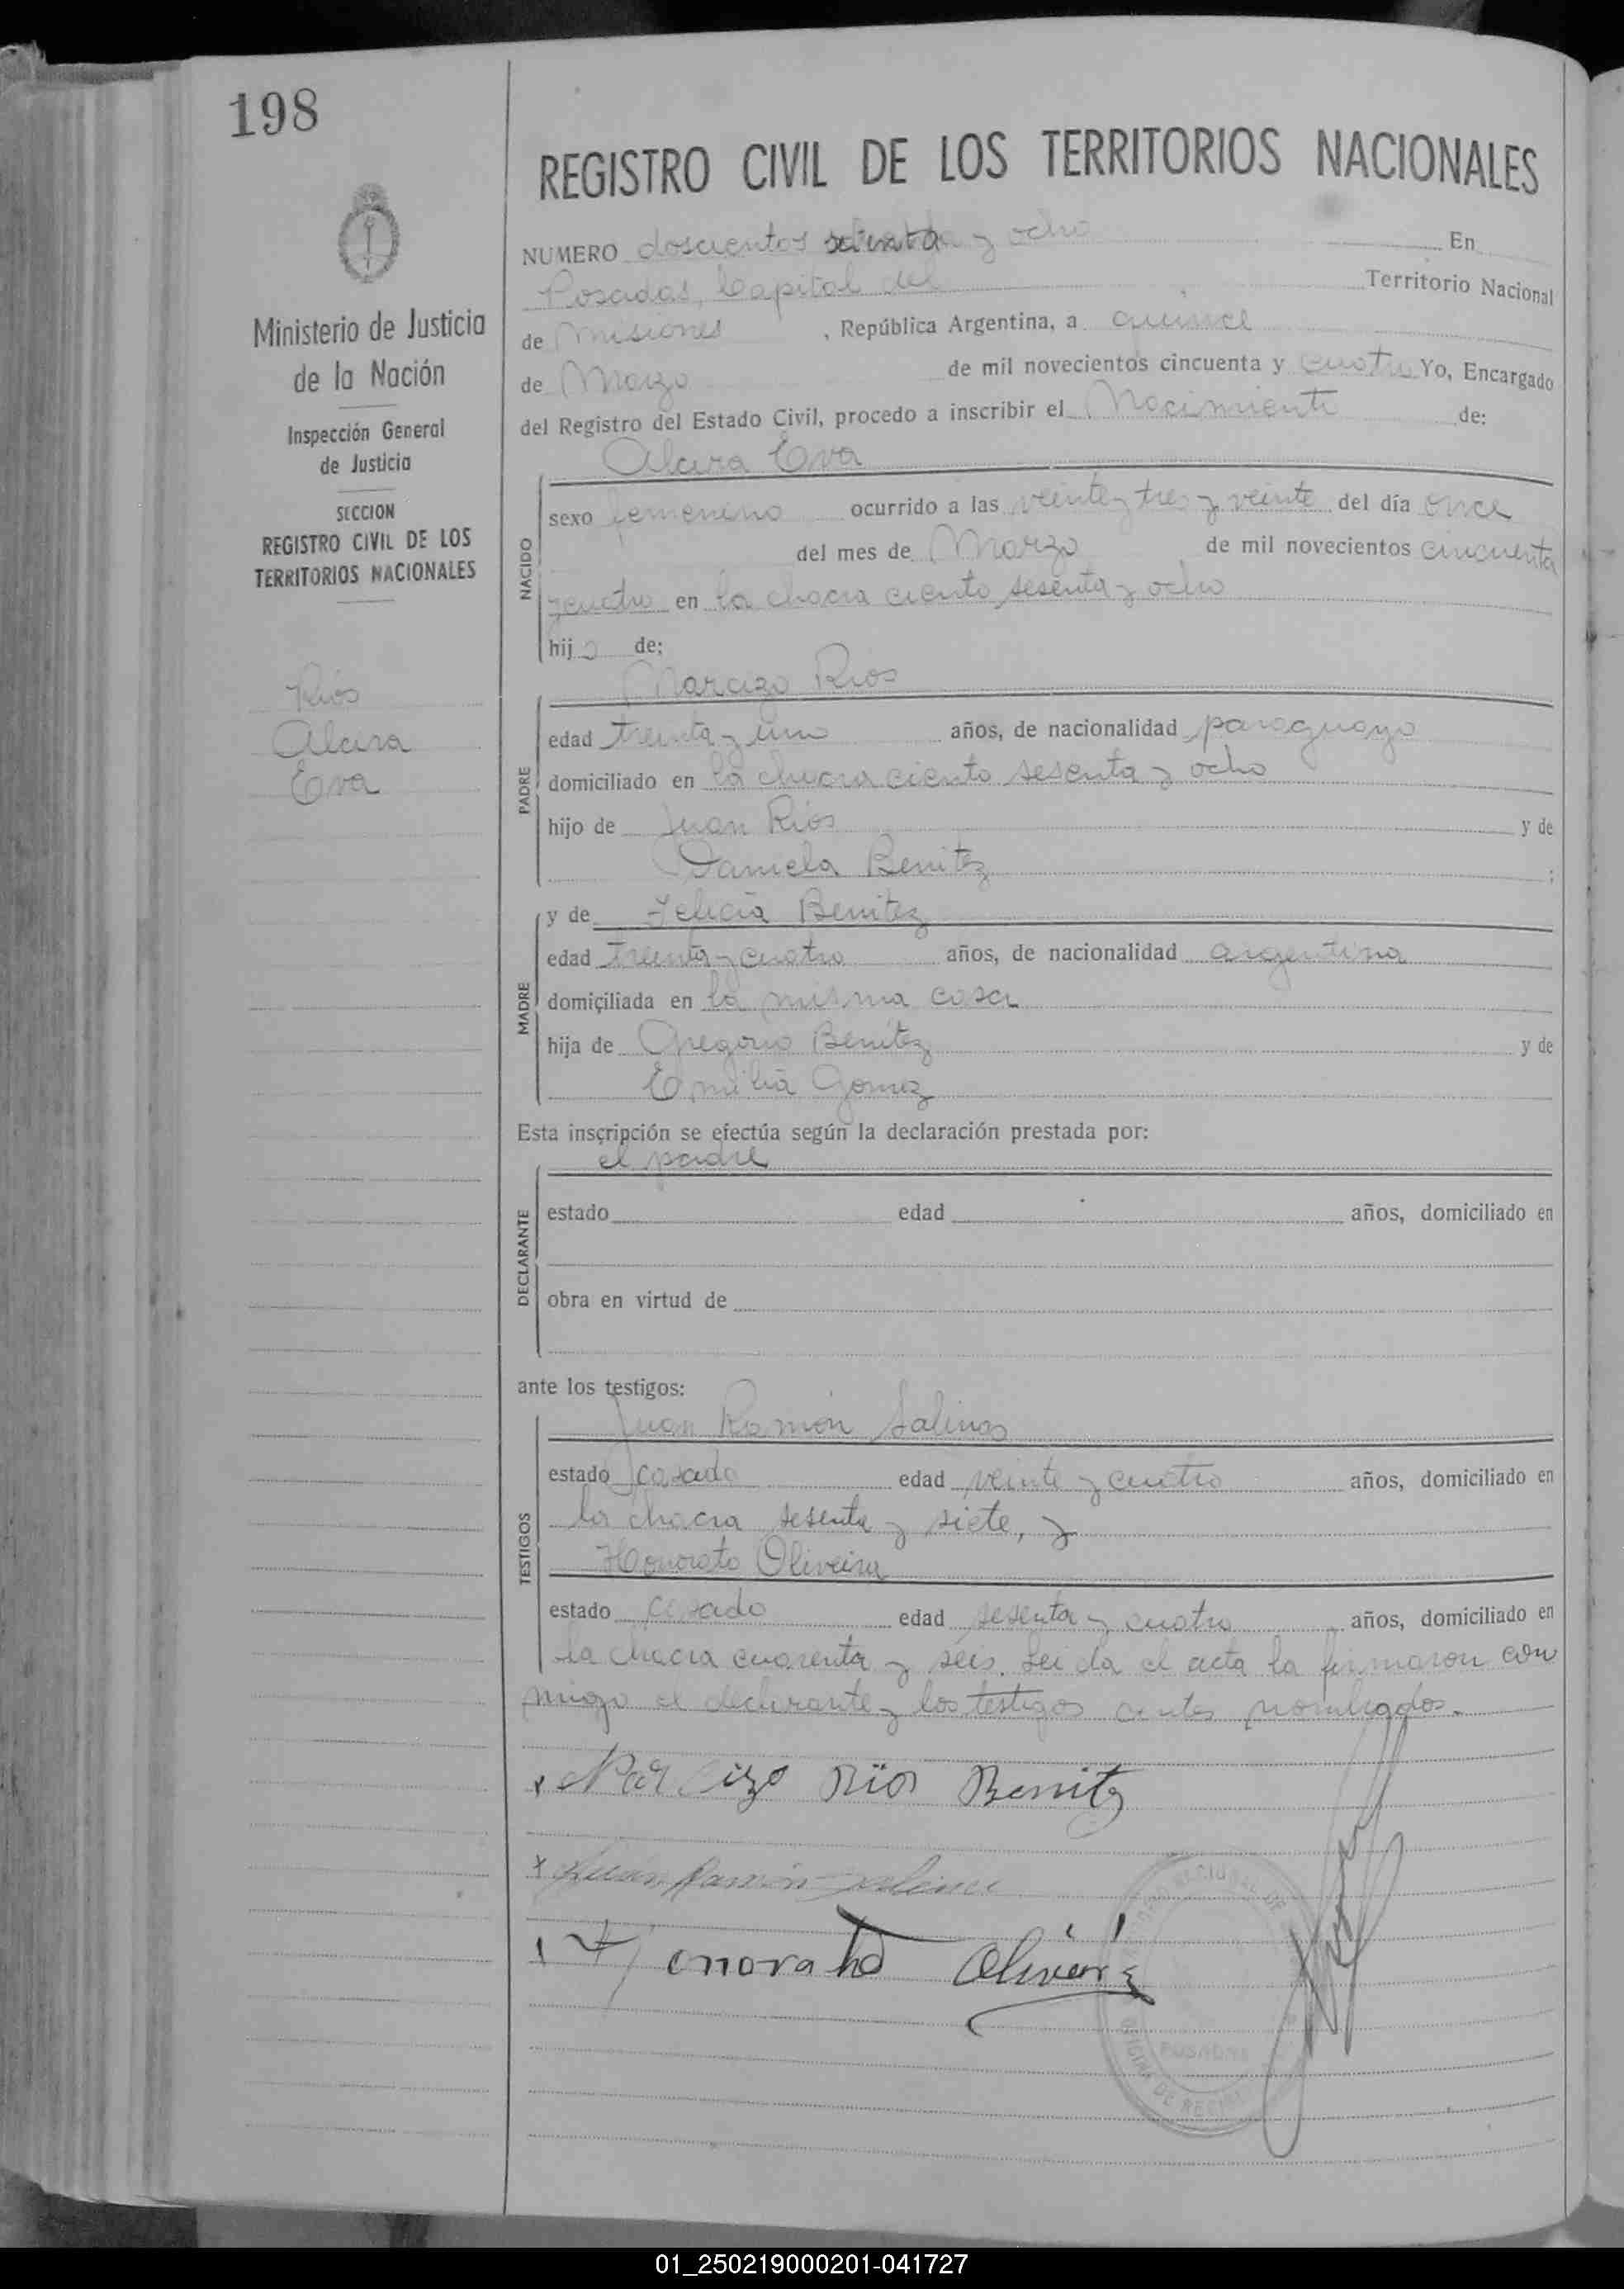 198
REGISTRO CIVIL DE LOS TERRITORIOS NACIONALES
Ministerio de Justicia
de la Nación
Inspección General
de Justicia
SECCION
REGISTRO CIVIL DE LOS
TERRITORIOS NACIONALES
Rios
Alcira
Eva
NUMERO doscientos y ocho En
Posadas, Capital del Territorio Nacional
de Misiones , República Argentina, a quince
de Marzo de mil novecientos cincuenta y cuatro Yo, Encargado
del Registro del Estado Civil, procedo a inscribir el Nacimiento de:
Alcira Eva
NACIDO
sexo femenino ocurrido a las veinte y tres y veinte del día once
del mes de Marzo de mil novecientos cincuenta
y cuatro en la chacra ciento sesenta y ocho
hija de:
Narcizo Rios
PADRE
edad treinta y uno años, de nacionalidad paraguayo
domiciliado en la chacra ciento sesenta y ocho
hijo de Juan Rios y de
Daniela Benitez ;
MADRE
y de Felicia Benitez
edad treinta y cuatro años, de nacionalidad argentina
domiciliada en la misma casa
hija de Gregorio Benitez y de
Emilia Gomez
Esta inscripción se efectúa según la declaración prestada por:
el padre
DECLARANTE
estado edad años, domiciliado en
obra en virtud de
ante los testigos:
Juan Ramón Salinas
TESTIGOS
estado casado edad veinte y cuatro años, domiciliado en
la chacra sesenta y siete, y
Honorato Oliveira
estado casado edad sesenta y cuatro años, domiciliado en
la chacra cuarenta y seis. Leida el acta la firmaron con
migo el declarante y los testigos antes nombrados.
x Narcizo Rios Benitez
x Juan Ramón Salinas
Honorato Oliveira
POSADAS
01_250219000201-041727